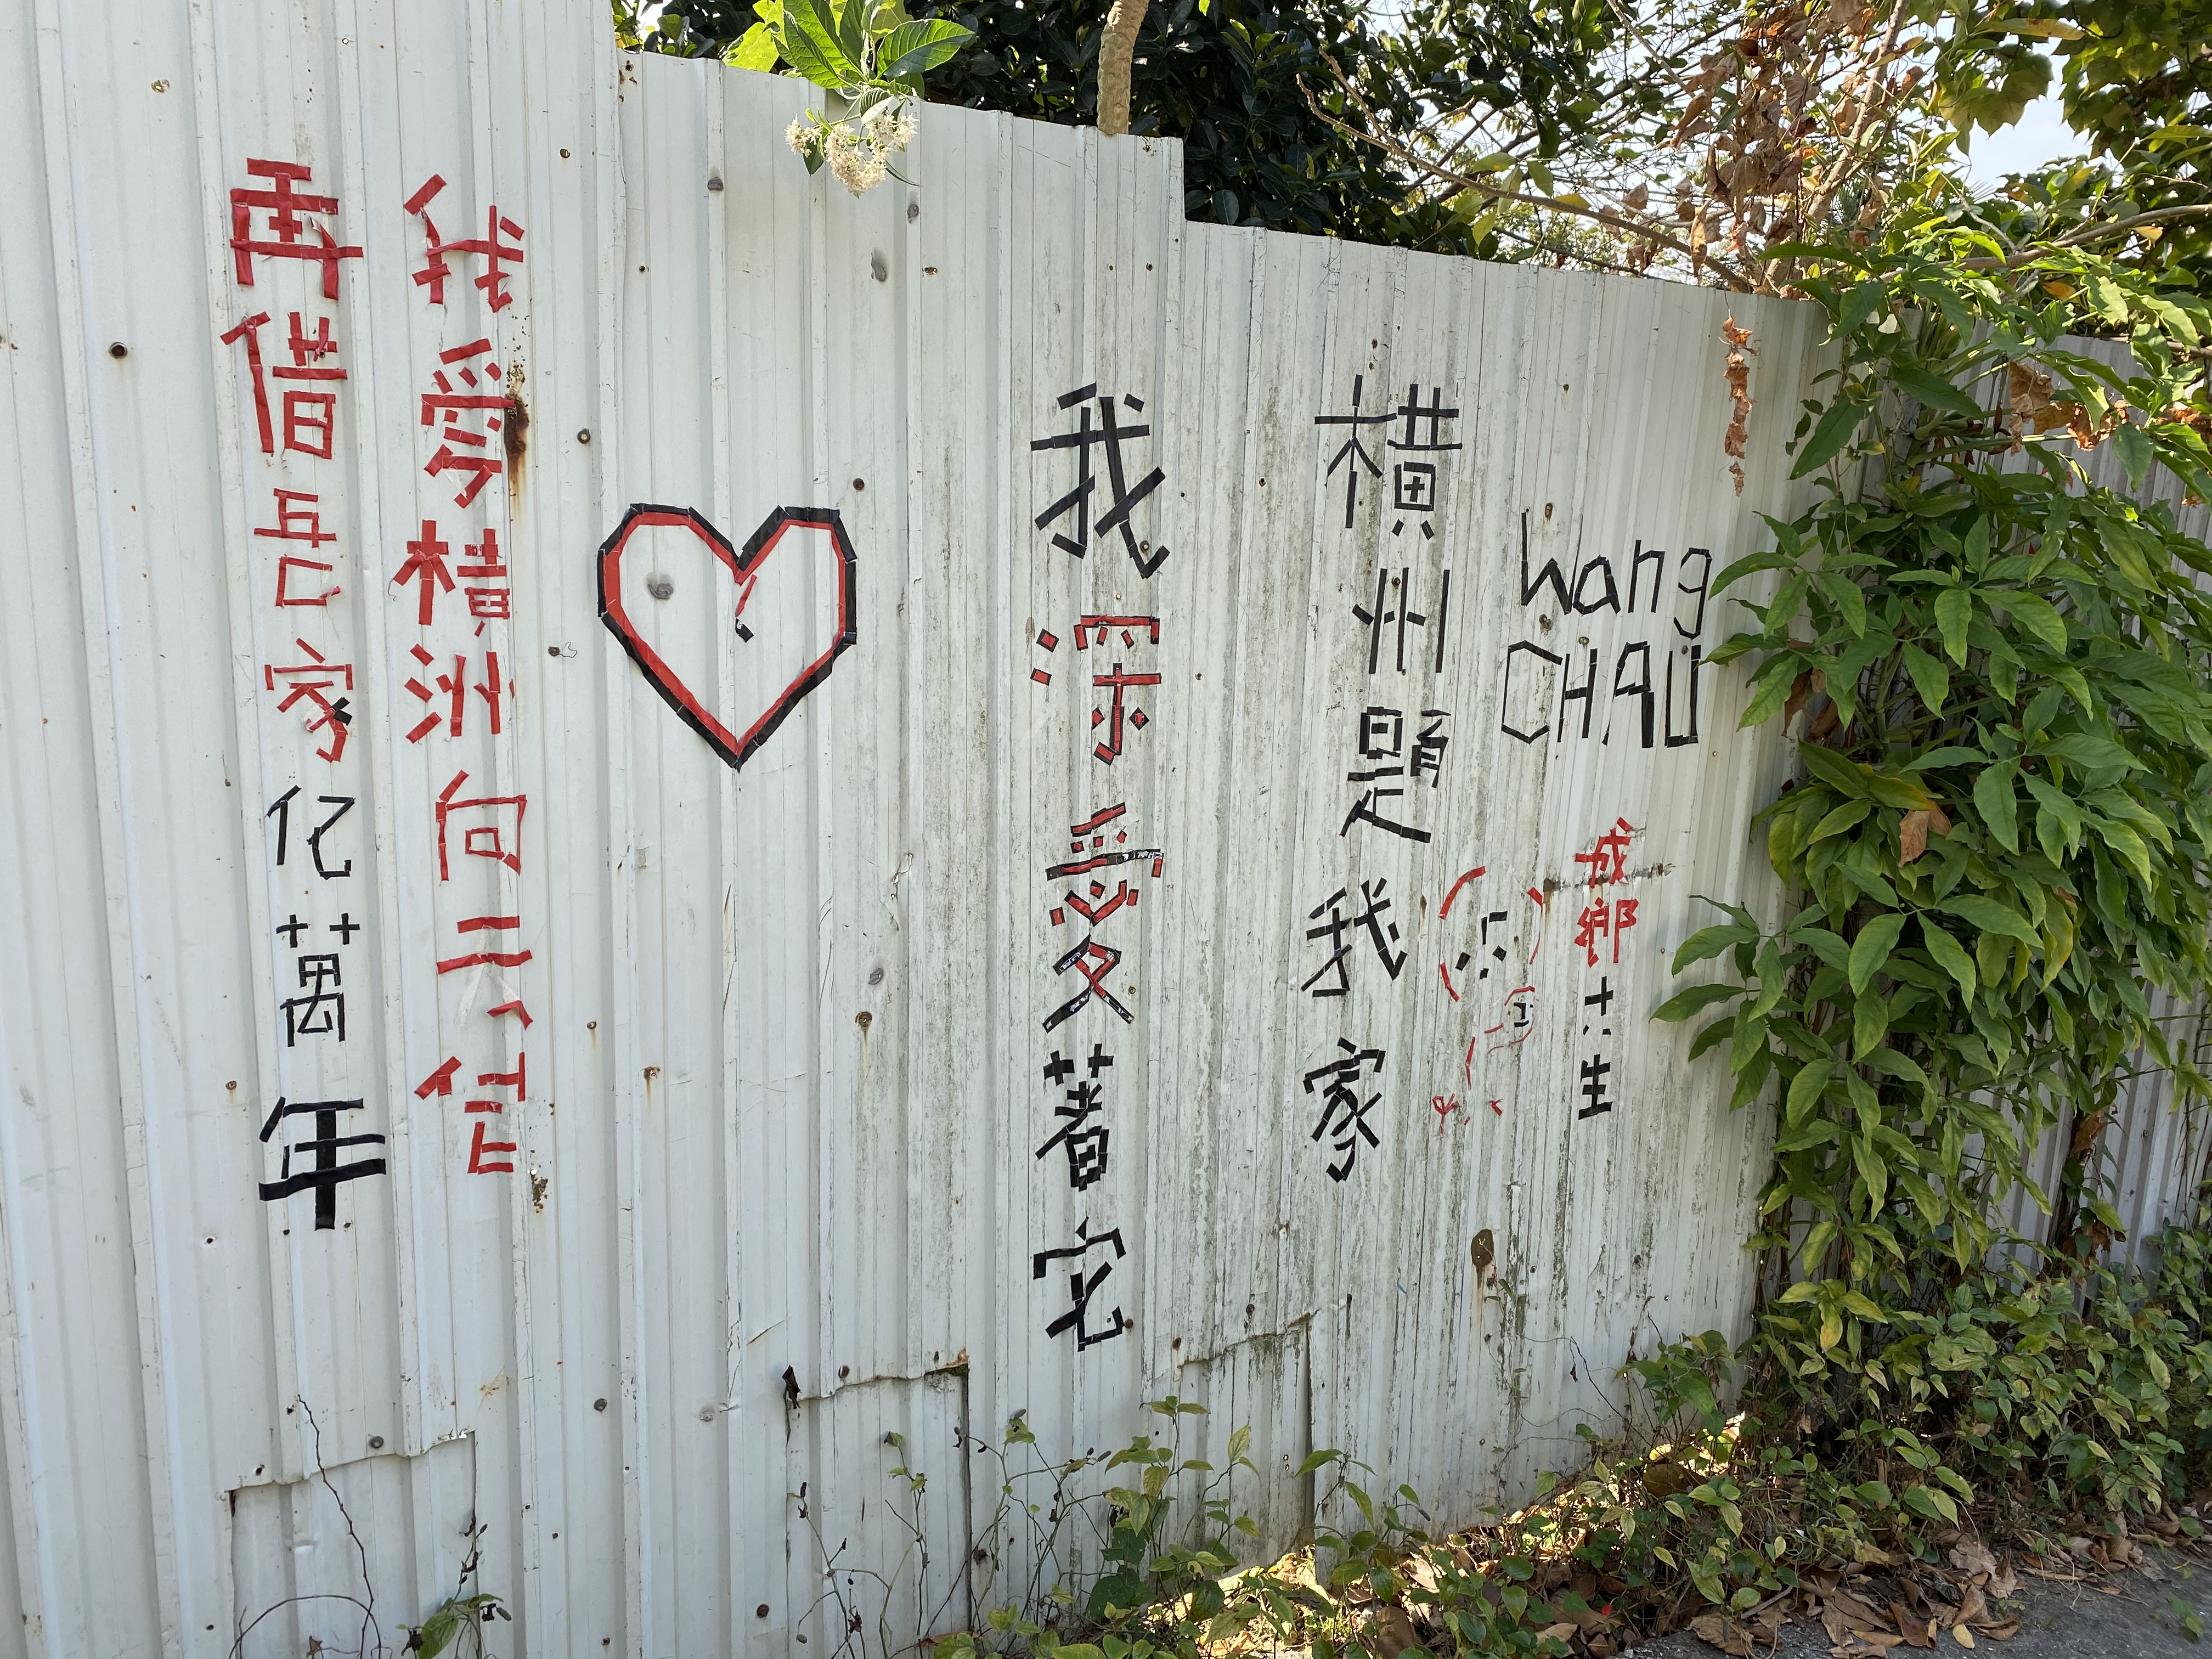 Wang
CHAU
城鄉共生
横州題我家
我深愛著它
我愛横洲向天借
再借吾家亿萬年